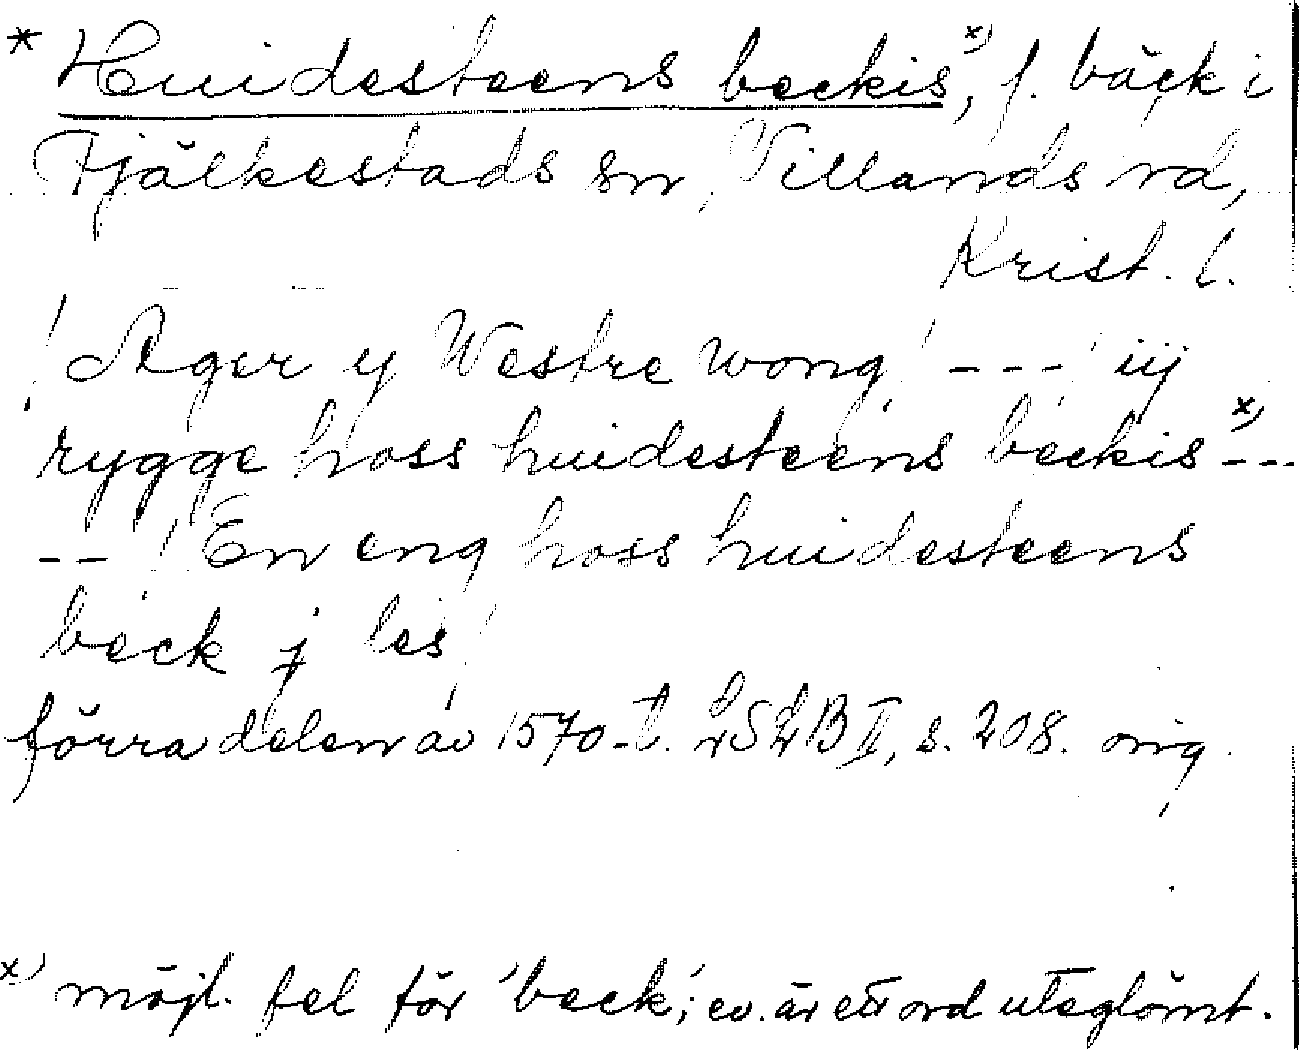 * Huidesteens beckis, x) f. bäck i
Fjälkestads sn, Villands hd,
Krist. l.
! Ager y Westre wong! --- ! iij
rygge hoss huidesteens beckis x) ---
-- ! En eng hoss huidesteens
beck j les!
förra delen av 1570-t. LSLB II, s. 208. orig.
x) möjl. fel för 'beck'; ev. är ett ord uteglömt.